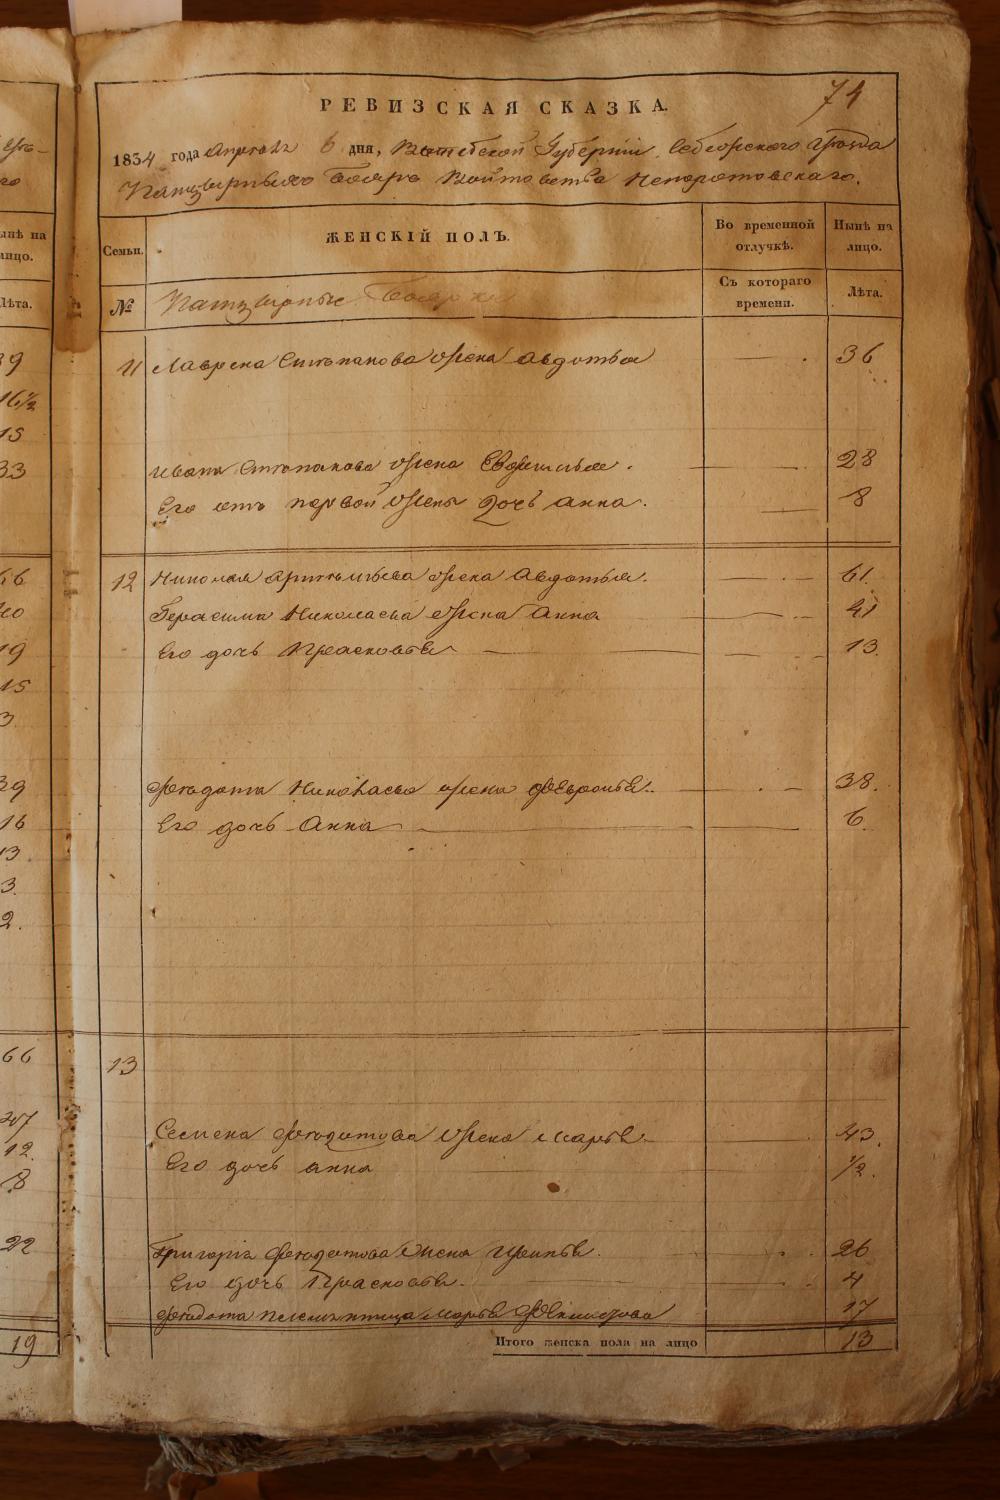 74
РЕВИЗСКАЯ СКАЗКА.
1834 года Апреля 6 дня, Витебской Губерніи, Себежского уезда
Панцырныхъ Бояръ Войтовства Непоротовскаго.
ынѣ на
лицо.
Лѣта.
Семьи. ЖЕНСКІЙ ПОЛЪ. Во временной отлучкѣ. Нынѣ на лицо.
№ Панцырные Боярки Съ котораго времени. Лѣта.
11 Лаврена Степанова жена Авдотья 36
Ивана Степанова жена 28
Его отъ первой жены дочь Анна. 8
12 Николая жена Авдотья. 61.
Герасима Николаева жена Анна 41
Его дочь Прасковья 13.
Федота Николаева жена Февронья. 38.
Его дочь Анна 6.
13
Семена Федотова жена Марья 43.
Его дочь Анна 1/2.
Григорія Федотова жена 26
Его дочь Прасковья. 4
Федота племянница Марья 17
Итого женска пола на лицо 13
16 1/2
15
33
19
15
3.
16
13
3.
2.
66
12.
8
22
19